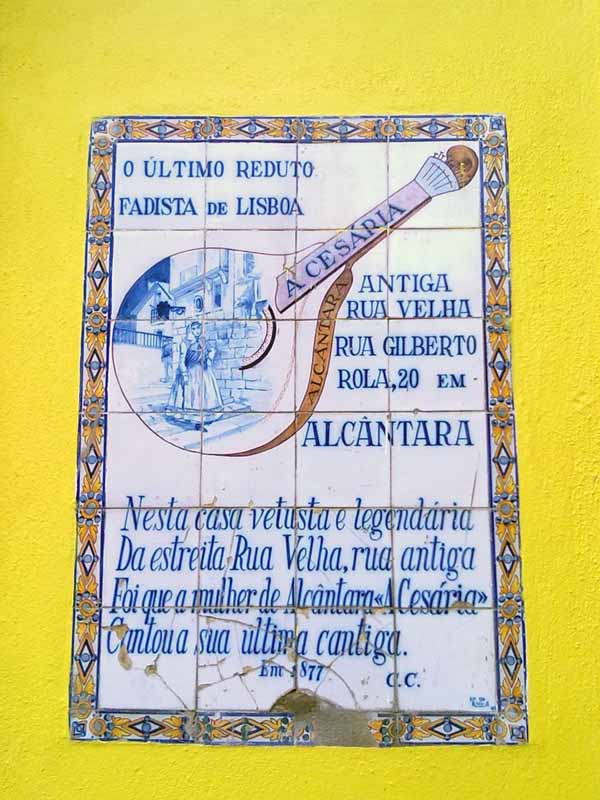 O ÚLTIMO REDUTO
FADISTA DE LISBOA
A CESÁRIA
ALCÂNTARA
ANTIGA
RUA VELHA
RUA GILBERTO
ROLA, 20 EM
ALCÂNTARA
Nesta casa vetusta e legendária
Da estreita Rua Velha, rua antiga
Foi que a mulher de Alcântara «A Cesária»
Cantou a sua ultima cantiga.
Em 1877
C.C.